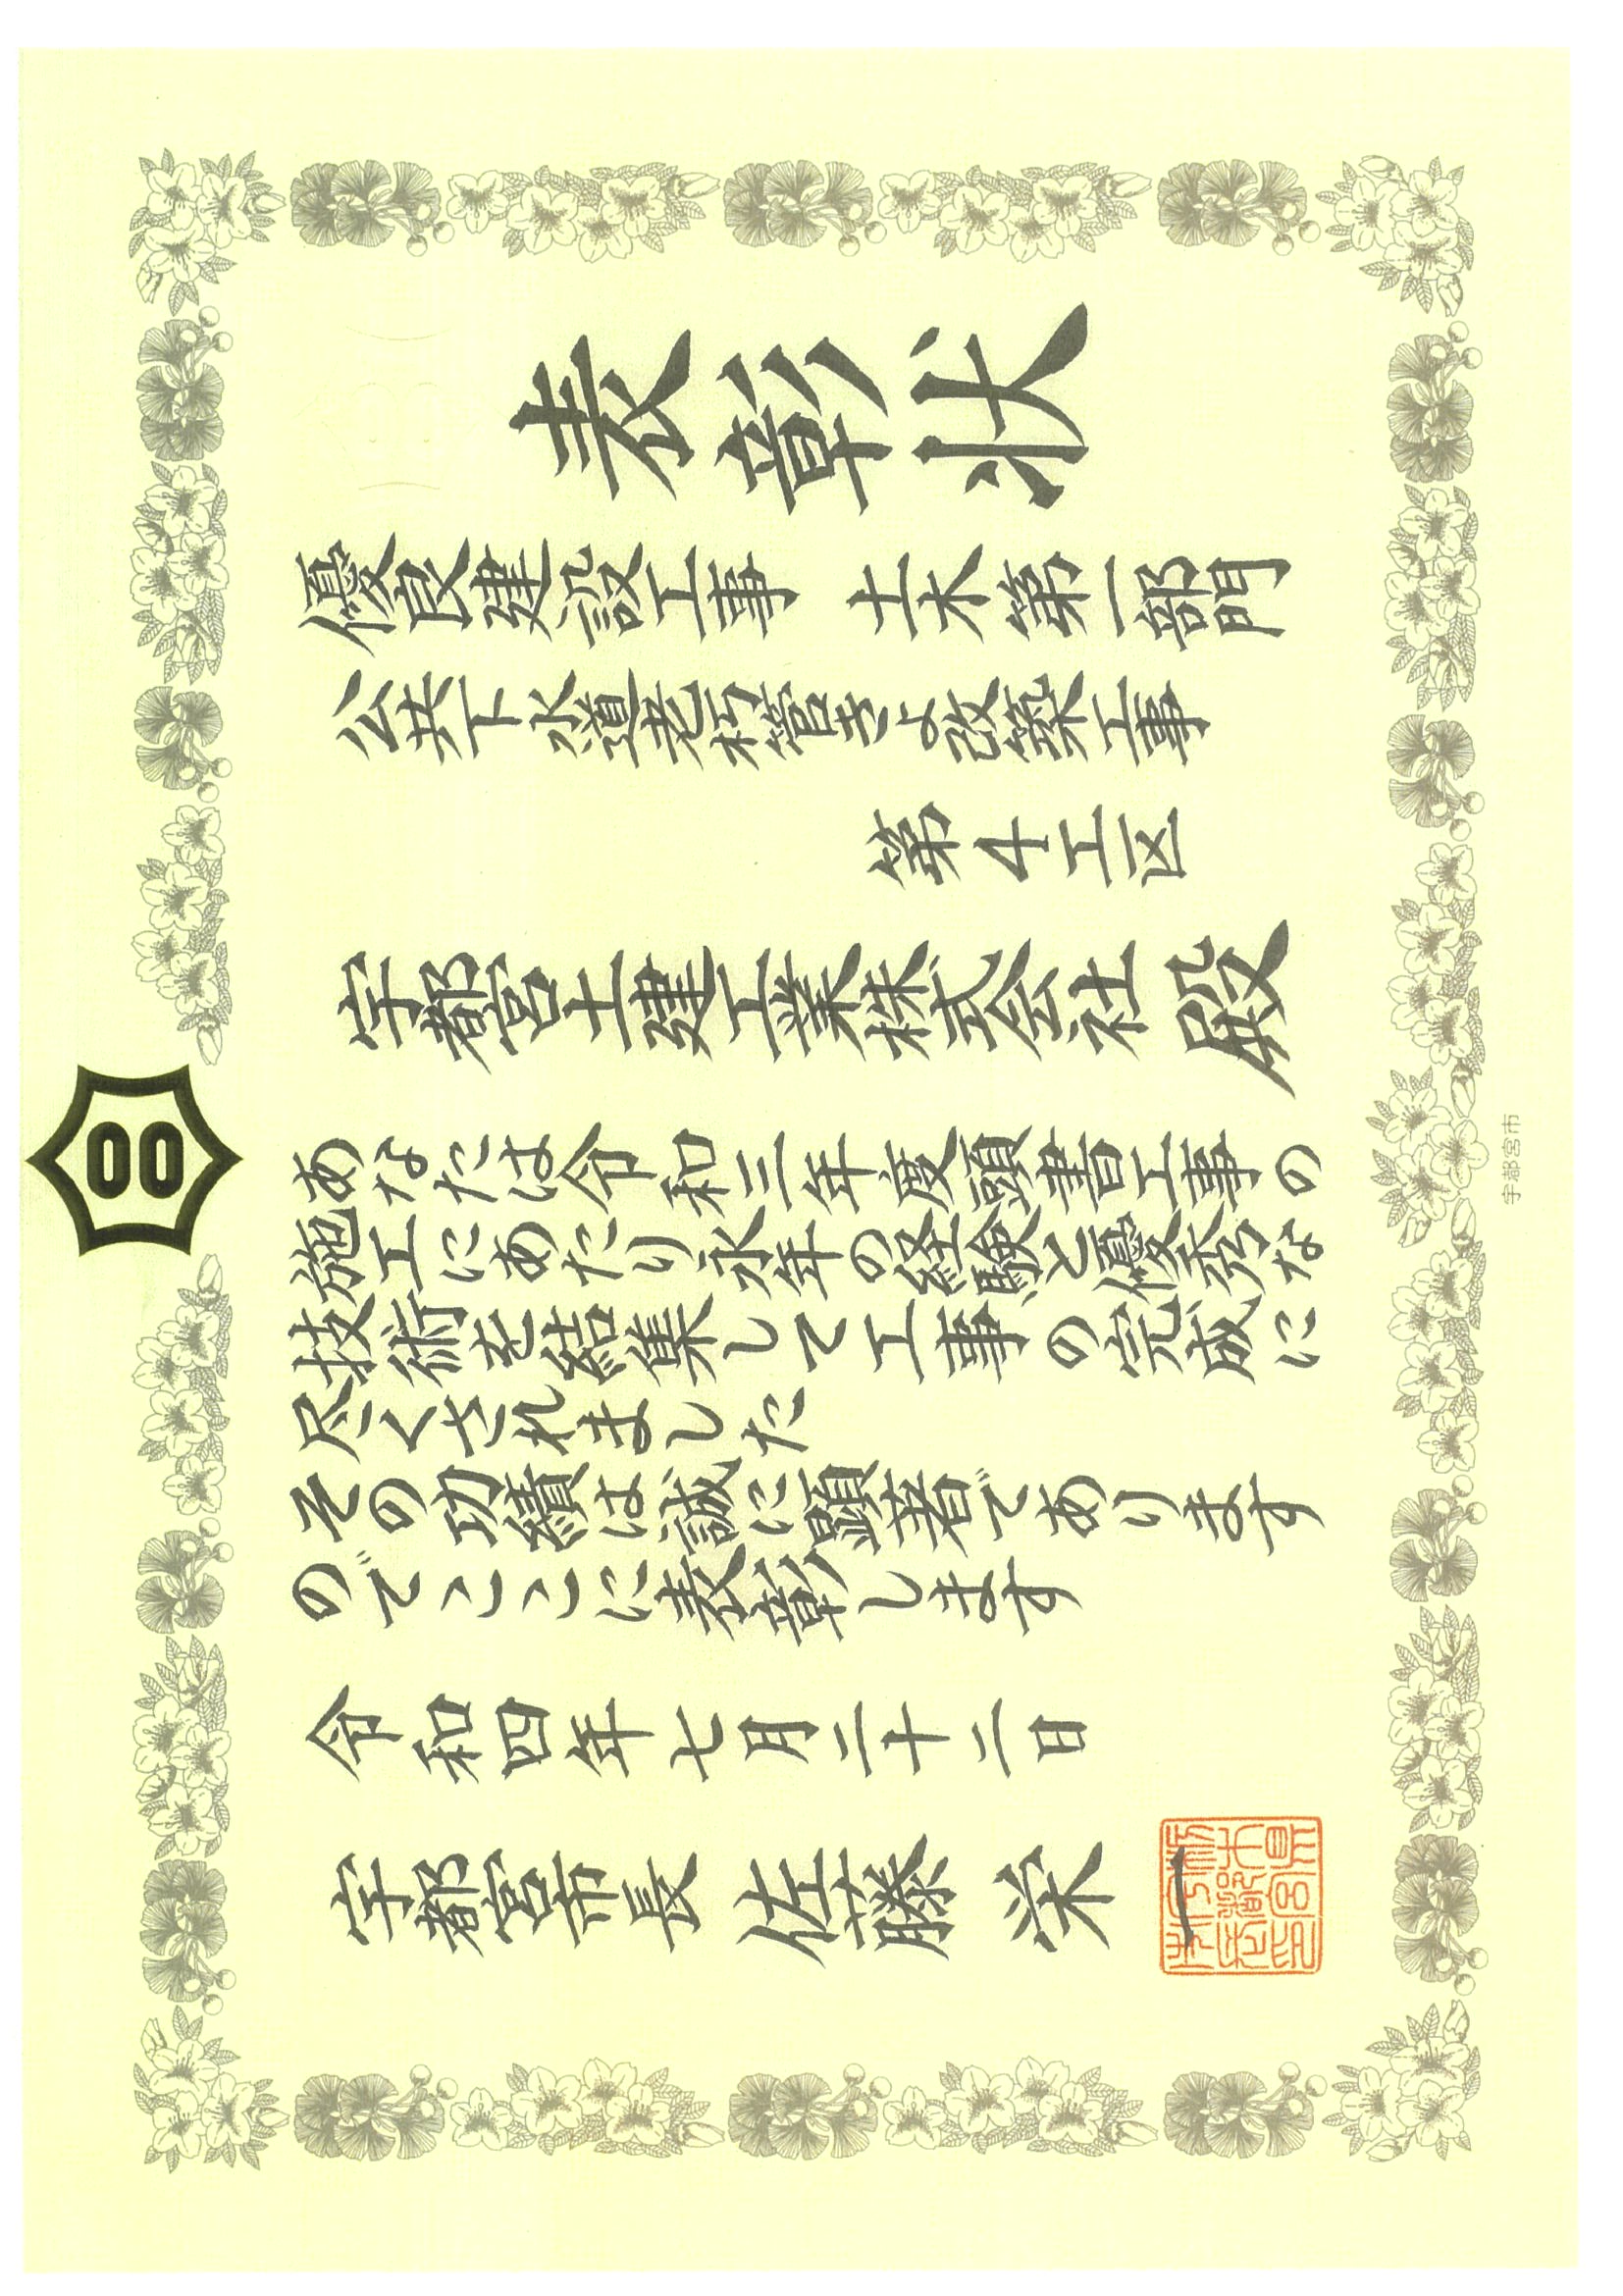 表彰状
優良建設工事 土木第一部門
公共下水道老朽管きょ改築工事
第4工区
宇都宮土建工業株式会社 殿
あなたは令和三年度頭書工事の
施工にあたり永年の経験と優秀な
技術を結集して工事の完成に
尽くされました
その功績は誠に顕著であります
のでここに表彰します
令和四年七月二十二日
宇都宮市長 佐藤栄一
宇都宮市